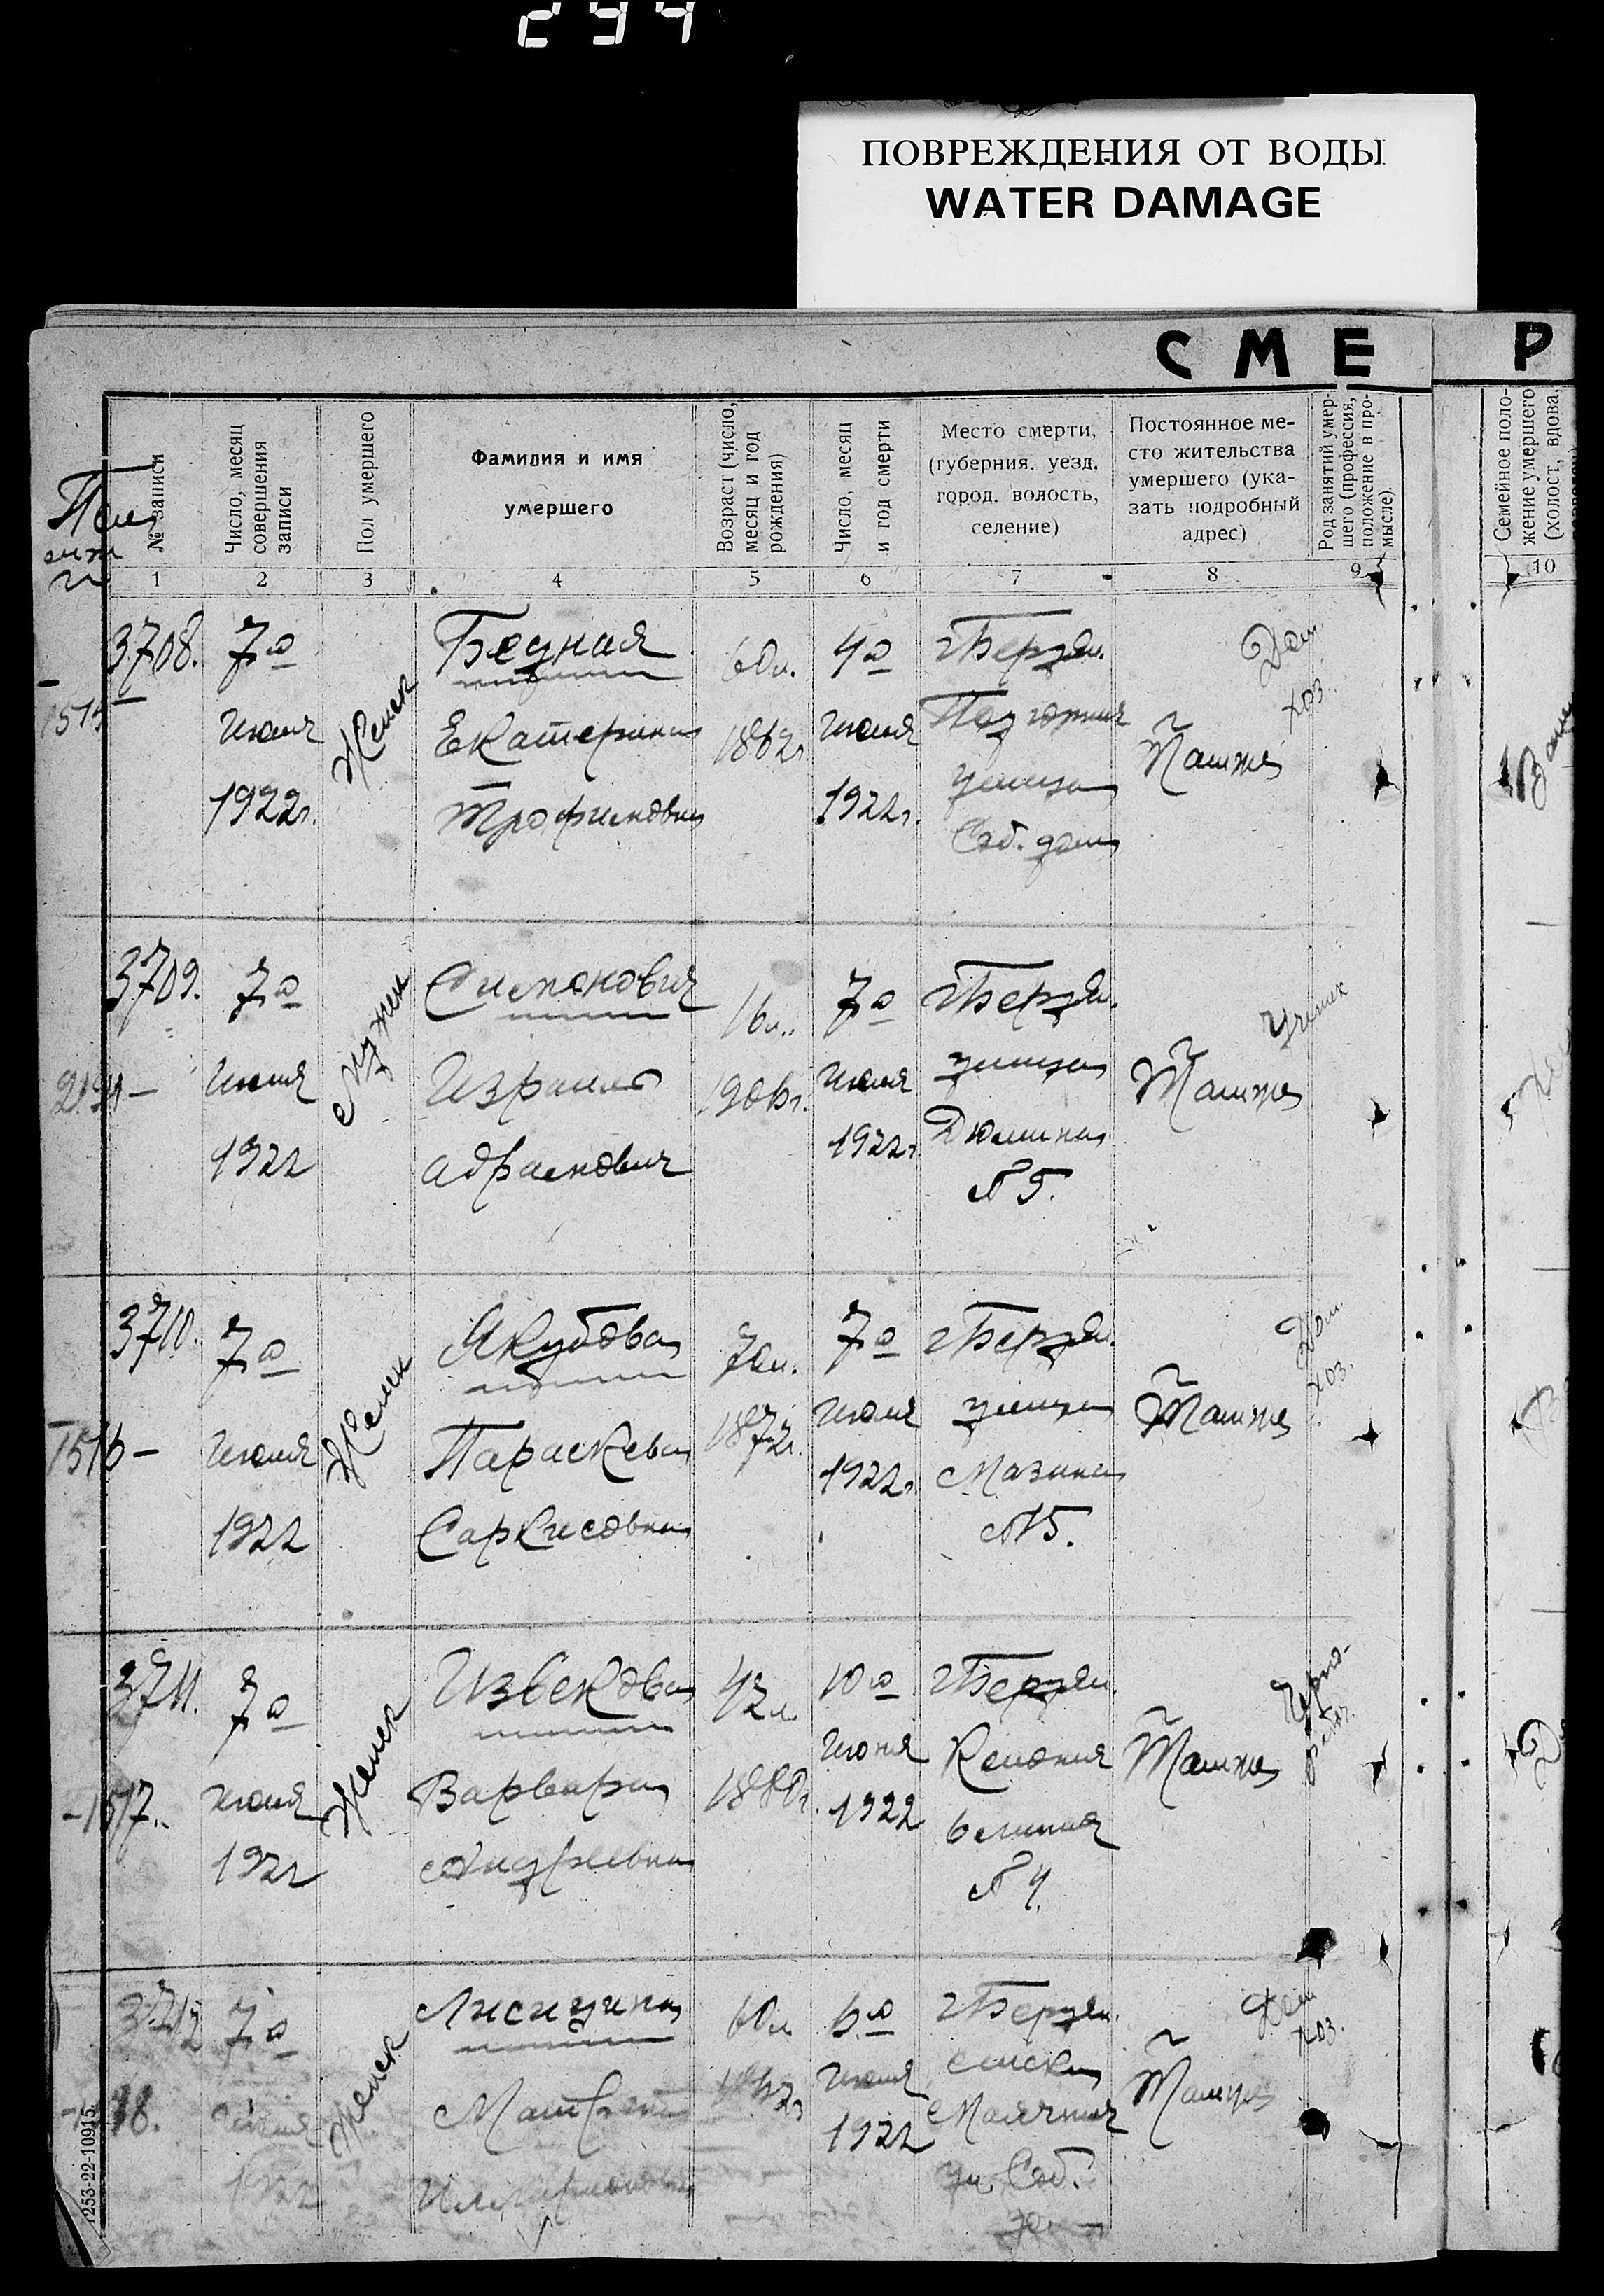 294
ПОВРЕЖДЕНИЯ ОТ ВОДЫ
WATER DAMAGE
СМЕ
Р
№ записи
Число, месяц
совершения
записи
Пол умершего
Фамилия и имя
умершего
Возраст (число,
месяц и год
рождения)
Число, месяц
и год смерти
Место смерти,
(губерния, уезд,
город, волость,
селение)
Постоянное ме-
сто жительства
умершего (ука-
зать подробный
адрес)
Род занятий умер-
шего (профессия,
положение в про-
мысле).
Семейное поло-
жение умершего
(холост, вдова,
1 2 3 4 5 6 7 8 9 10
3708.
7го
Июля
1922г.
Женск
Бедная
Екатерина
Трофимовна
60л.
1862г
4го
Июля
1922г.
г Бердян.
Нагорная
улица
Соб. дом
Там же
Дом.
хоз.
3709.
7го
Июля
1922
Мужск
Симонович
Израиль
Абрамович
16л.
1906г.
7го
Июля
1922г
г Бердян.
улица
Дюмина
№ 5.
Там же
Ученик
3710.
1516 –
7го
Июля
1922
Женск
Якубова
Параскева
Саркисовна
70л.
7го
Июля
1922г
г Бердян.
улица
Мазина
№ 15.
Там же
Дом.
хоз.
3711.
– 1517.
7го
Июля
1922
Женск
Извекова
Варвара
Андреевна
42л
1880г.
10го
Июня
1922
г Бердян.
Колония
№ 4.
Там же
Черно-
рабоч.
3712
18.
7го
1922
Женск
Лисицина
60л
6го
Июля
1922
г Бердян.
Маячная
ул. Соб.
дом
Там же
Дом
хоз.
1253-22-10915